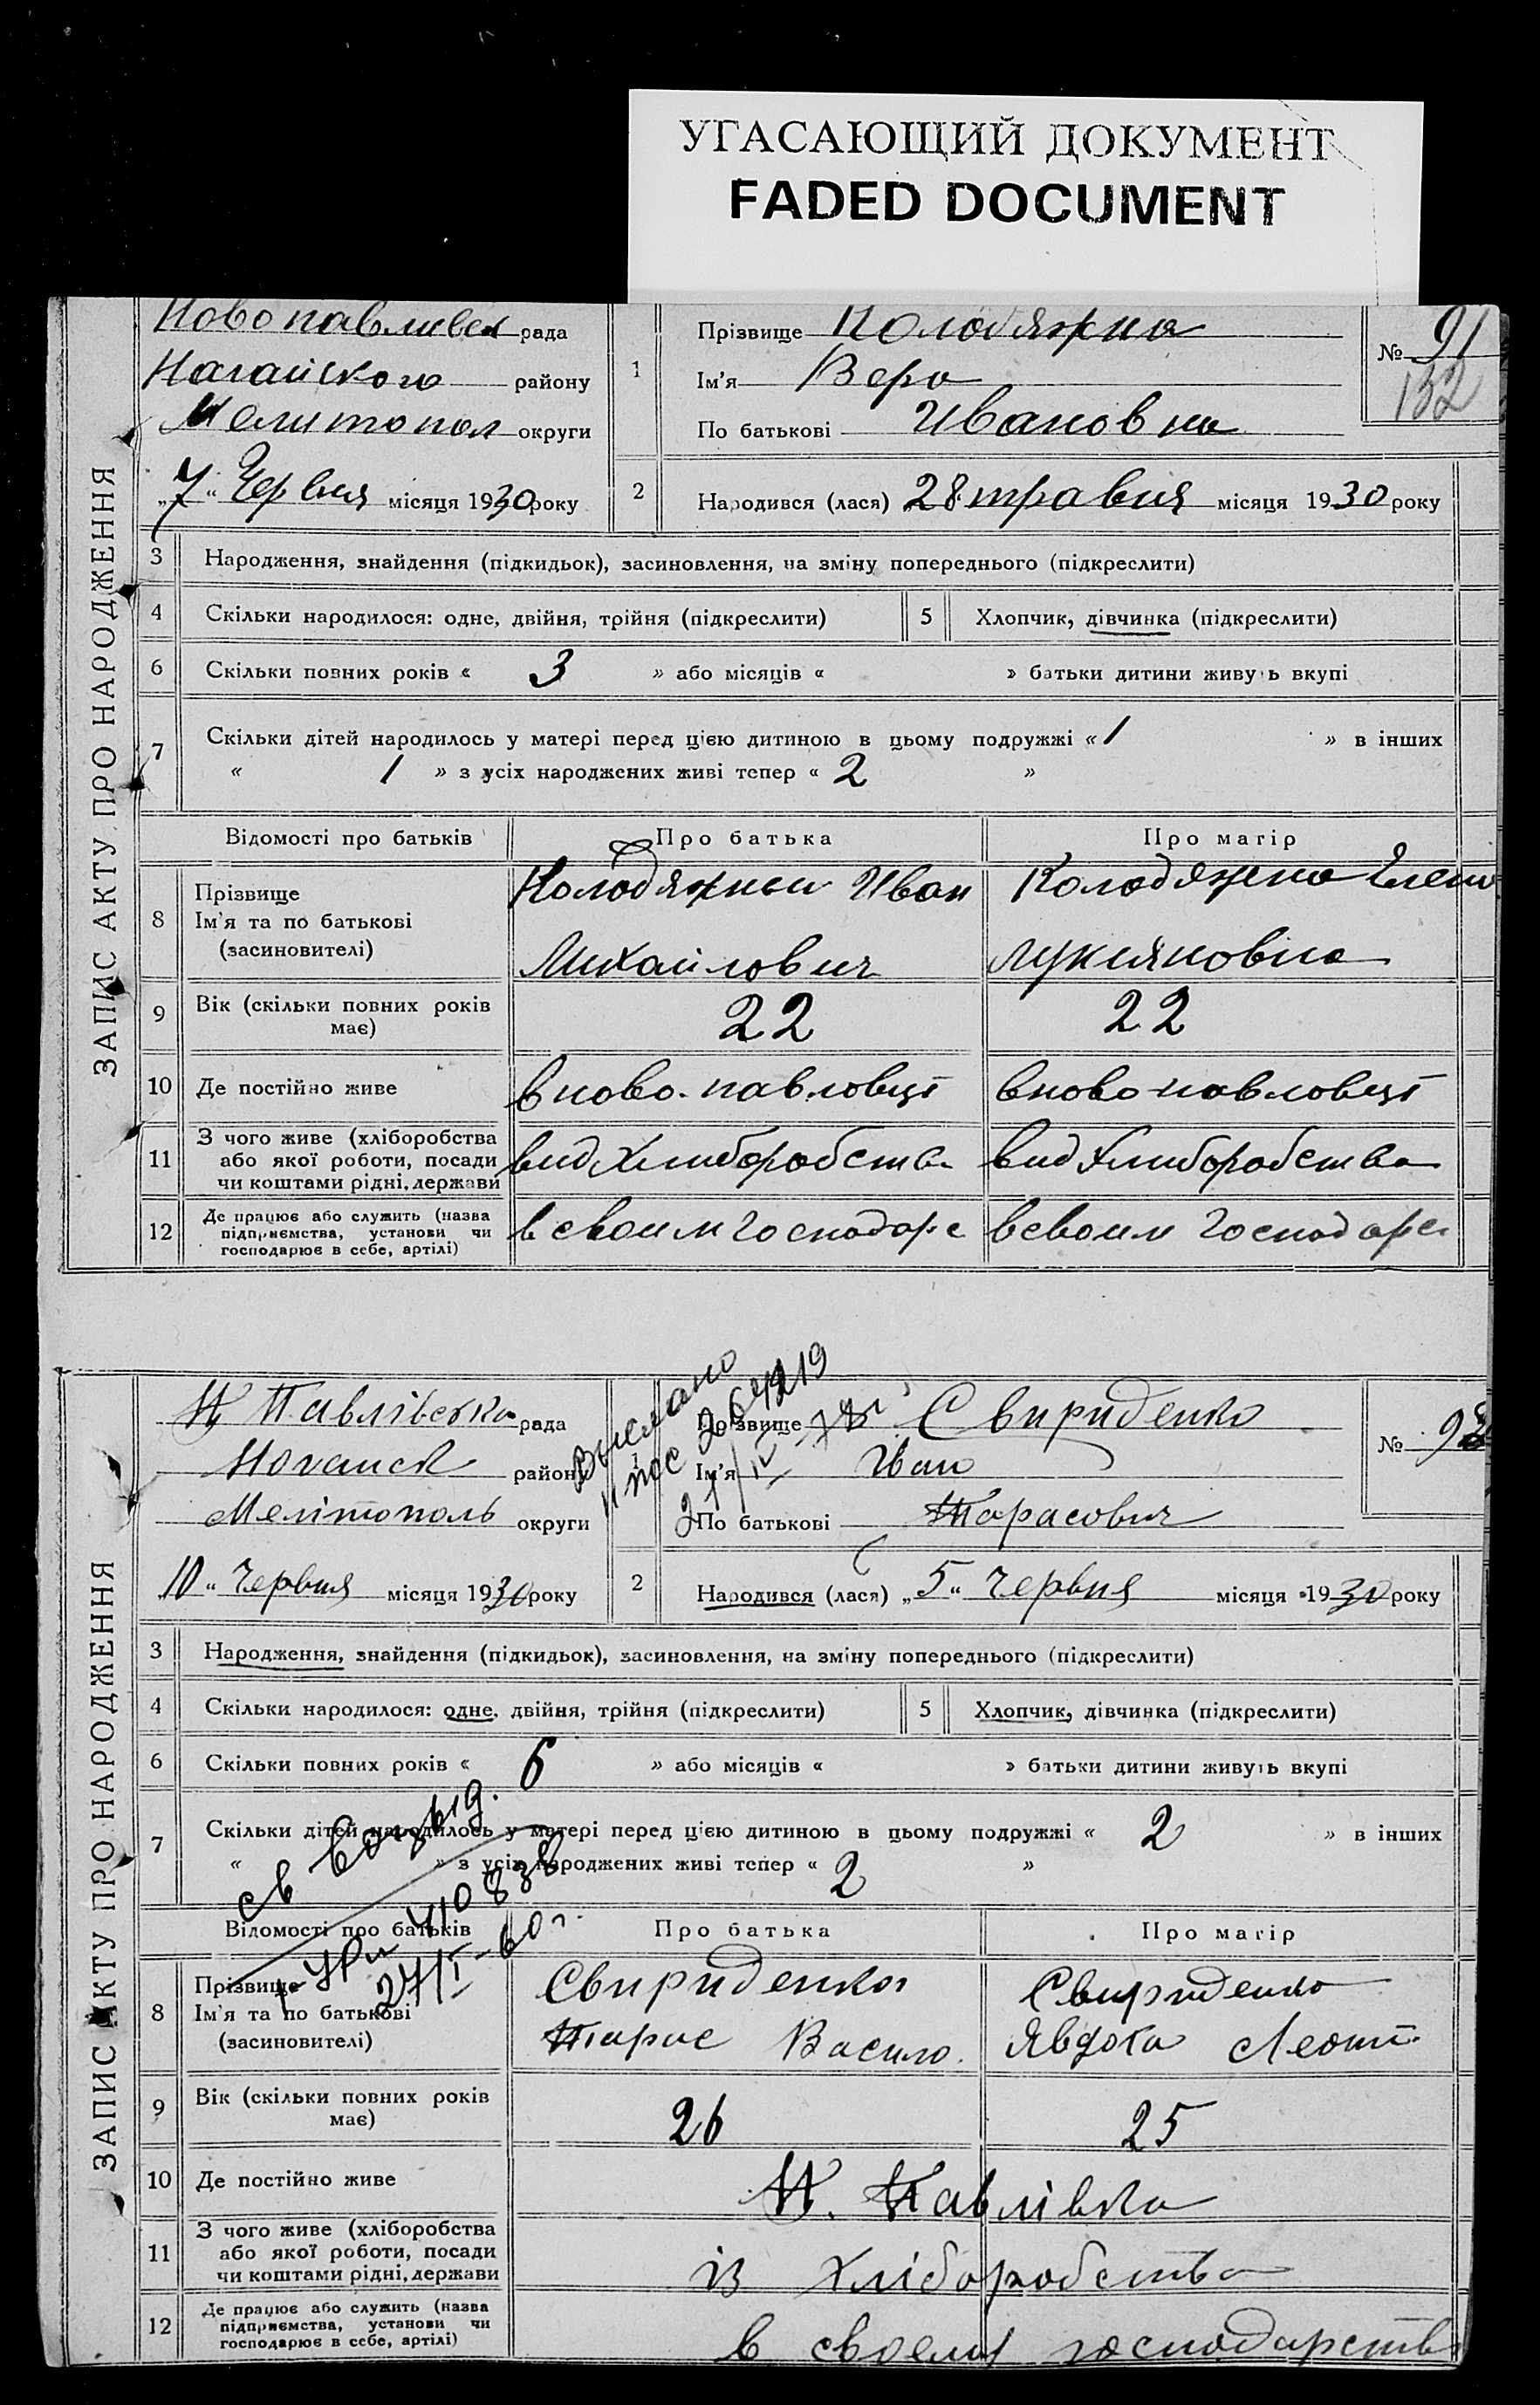 УГАСАЮЩИЙ ДОКУМЕНТ
FADED DOCUMENT
ЗАПИС АКТУ ПРО НАРОДЖЕННЯ
Новопавливск рада
Нагайского району
Мелитопол округи
„7“ Червня місяця 1930 року
1
Прізвище Колодяжна
Ім'я Вера
По батькові Ивановна
№ 91
132
2 Народився (лася) 28 травня місяця 1930 року
3 Народження, знайдення (підкидьок), засиновлення, на зміну попереднього (підкреслити)
4 Скільки народилося: одне, двійня, трійня (підкреслити) 5 Хлопчик, дівчинка (підкреслити)
6 Скільки повних років « 3 » або місяців « » батьки дитини живуть вкупі
7 Скільки дітей народилось у матері перед цією дитиною в цьому подружжі « 1 » в інших
« 1 » з усіх народжених живі тепер « 2 »
Відомості про батьків Про батька Про матір
8 Прізвище Ім'я та по батькові (засиновителі)
Колодяжный Иван Михайлович
Колодяжена Елена Лукияновна
9 Вік (скільки повних років має) 22 22
10 Де постійно живе в ново-павловці в ново-павловці
11 З чого живе (хліборобства або якої роботи, посади чи коштами рідні, держави вид хлиборобства вид хлиборобства
12 Де працює або служить (назва підприємства, установи чи господарює в себе, артілі) в своим господаре в своим господаре
ЗАПИС АКТУ ПРО НАРОДЖЕННЯ
Н Павлівська рада
Ногайск району
Мелітополь округи
10“ Червня місяця 1930 року
Прізвище Свириденко
Ім'я Іван
По батькові Тарасович
№ 92
2 Народився (лася) „5“ Червня місяця 1930 року
3 Народження, знайдення (підкидьок), засиновлення, на зміну попереднього (підкреслити)
4 Скільки народилося: одне, двійня, трійня (підкреслити) 5 Хлопчик, дівчинка (підкреслити)
6 Скільки повних років « 6 » або місяців « » батьки дитини живуть вкупі
7 Скільки дітей народилось у матері перед цією дитиною в цьому подружжі « 2 » в інших
« » з усіх народжених живі тепер « 2 »
27/I-60 г.
Відомості про батьків Про батька Про матір
8 Прізвище Ім'я та по батькові (засиновителі)
Свириденко Тарас Васило.
Свириденко Явдоха Леонт.
9 Вік (скільки повних років має) 26 25
10 Де постійно живе Н. Павлівка
11 З чого живе (хліборобства або якої роботи, посади чи коштами рідні, держави із хліборобства
12 Де працює або служить (назва підприємства, установи чи господарює в себе, артілі) в своему господарстві